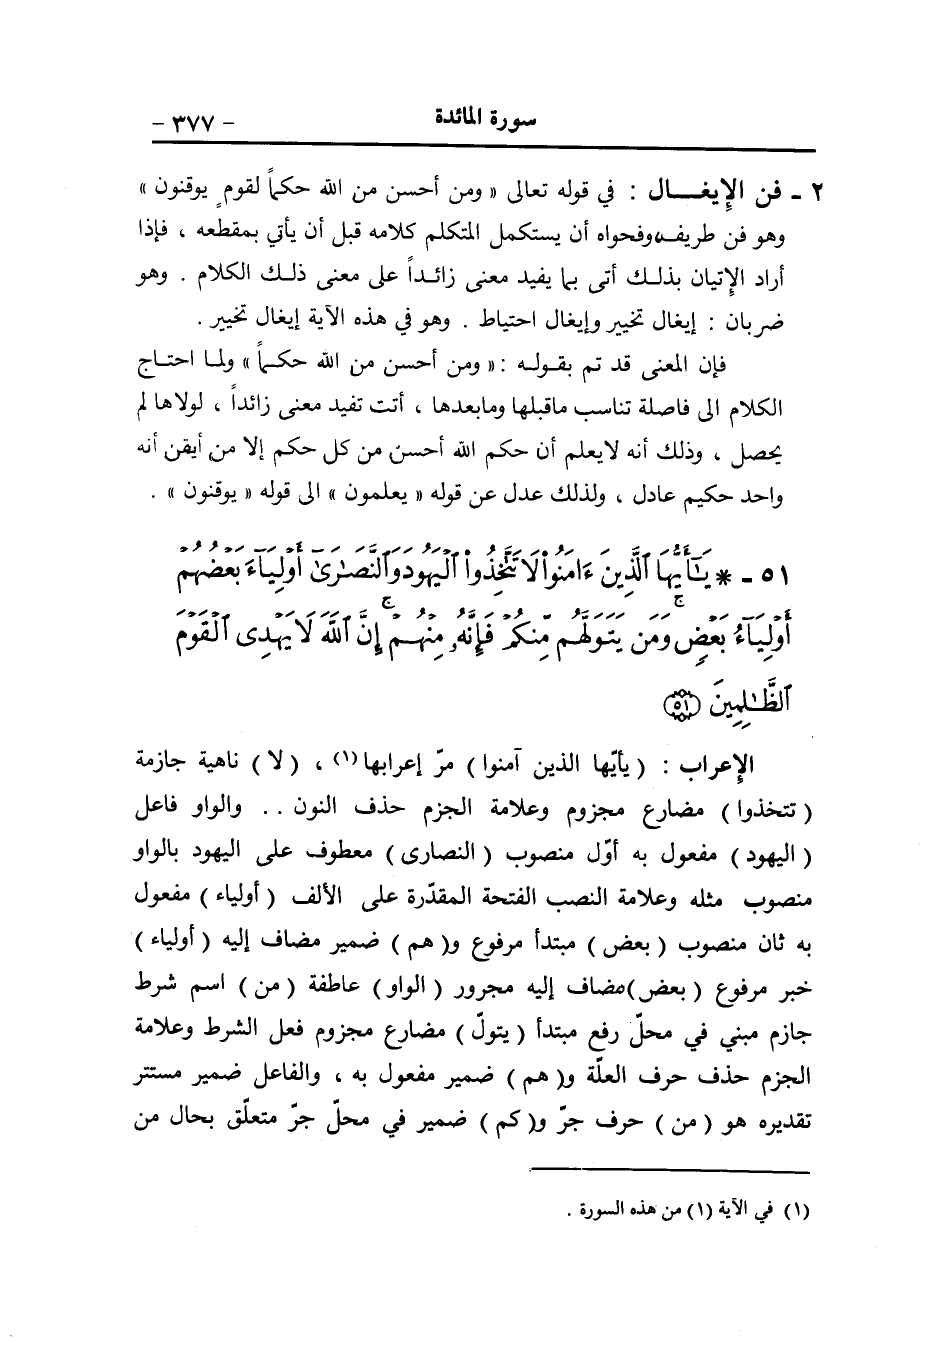 سورة المائدة - ٣٧٧ -
٢ - فن الإيغـــال : في قوله تعالى « ومن أحسن من الله حكماً لقومٍ يوقنون »
وهو فن طريف،وفحواه أن يستكمل المتكلم كلامه قبل أن يأتي بمقطعه ، فإذا
أراد الإتيان بذلـك أتى بما يفيد معنى زائـداً على معنى ذلـك الكلام . وهو
ضربان : إيغال تخيير وإيغال احتياط . وهو في هذه الآية إيغال تخيير .
فإن المعنى قد تم بقـولـه : « ومن أحسن من الله حكـماً » ولمـا احتـاج
الكلام الى فاصلة تناسب ماقبلها ومابعدها ، أتت تفيد معنى زائداً ، لولاها لم
يحصل ، وذلك أنه لايعلم أن حكم الله أحسن من كل حكم إلا من أيقن أنه
واحد حكيم عادل ، ولذلك عدل عن قوله « يعلمون » الى قوله « يوقنون » .
٥١ - * يَـٰٓأَيُّهَا ٱلَّذِينَ ءَامَنُوا۟ لَا تَتَّخِذُوا۟ ٱلْيَهُودَ وَٱلنَّصَـٰرَىٰٓ أَوْلِيَآءَ بَعْضُهُمْ
أَوْلِيَآءُ بَعْضٍ ۚ وَمَن يَتَوَلَّهُم مِّنكُمْ فَإِنَّهُۥ مِنْهُمْ ۗ إِنَّ ٱللَّهَ لَا يَهْدِى ٱلْقَوْمَ
ٱلظَّـٰلِمِينَ ﴿٥١﴾
الإعراب : ( يأيّها الذين آمنوا ) مرّ إعرابها(١) ، ( لا ) ناهية جازمة
( تتخذوا ) مضارع مجزوم وعلامة الجزم حذف النون . . والواو فاعل
( اليهود ) مفعول به أوّل منصوب ( النصارى ) معطوف على اليهود بالواو
منصوب مثله وعلامة النصب الفتحة المقدّرة على الألف ( أولياء ) مفعول
به ثان منصوب ( بعض ) مبتدأ مرفوع و( هم ) ضمير مضاف إليه ( أولياء )
خبر مرفوع ( بعض )مضاف إليه مجرور ( الواو ) عاطفة ( من ) اسم شرط
جازم مبني في محلّ رفع مبتدأ ( يتولّ ) مضارع مجزوم فعل الشرط وعلامة
الجزم حذف حرف العلّة و( هم ) ضمير مفعول به ، والفاعل ضمير مستتر
تقديره هو ( من ) حرف جرّ و( كم ) ضمير في محلّ جرّ متعلّق بحال من
(١) في الآية (١) من هذه السورة .